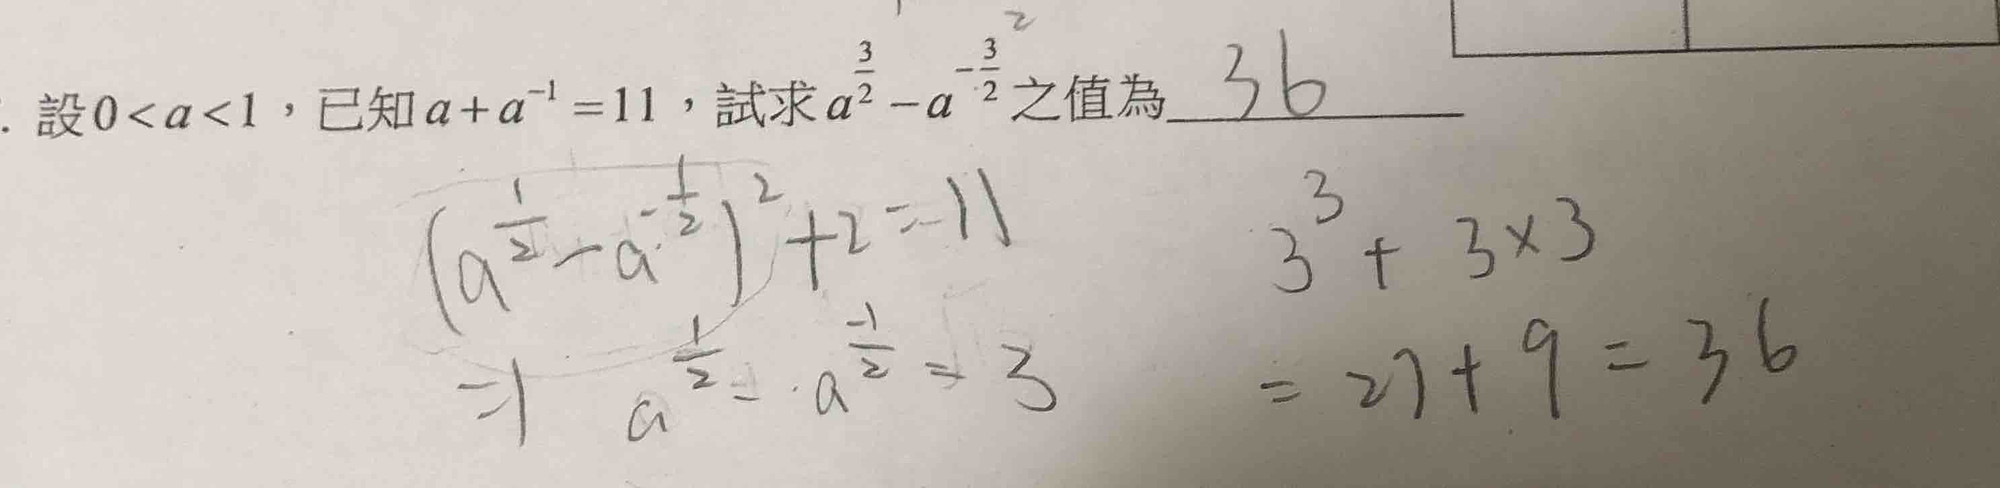 . 設 0 < a < 1，已知 a + a⁻¹ = 11，試求 a^(3/2) − a^(-3/2) 之值為 36
2
(a^(1/2) − a^(-1/2))² + 2 = 11
⇒ a^(1/2) − a^(-1/2) = 3
3³ + 3×3
= 27 + 9 = 36